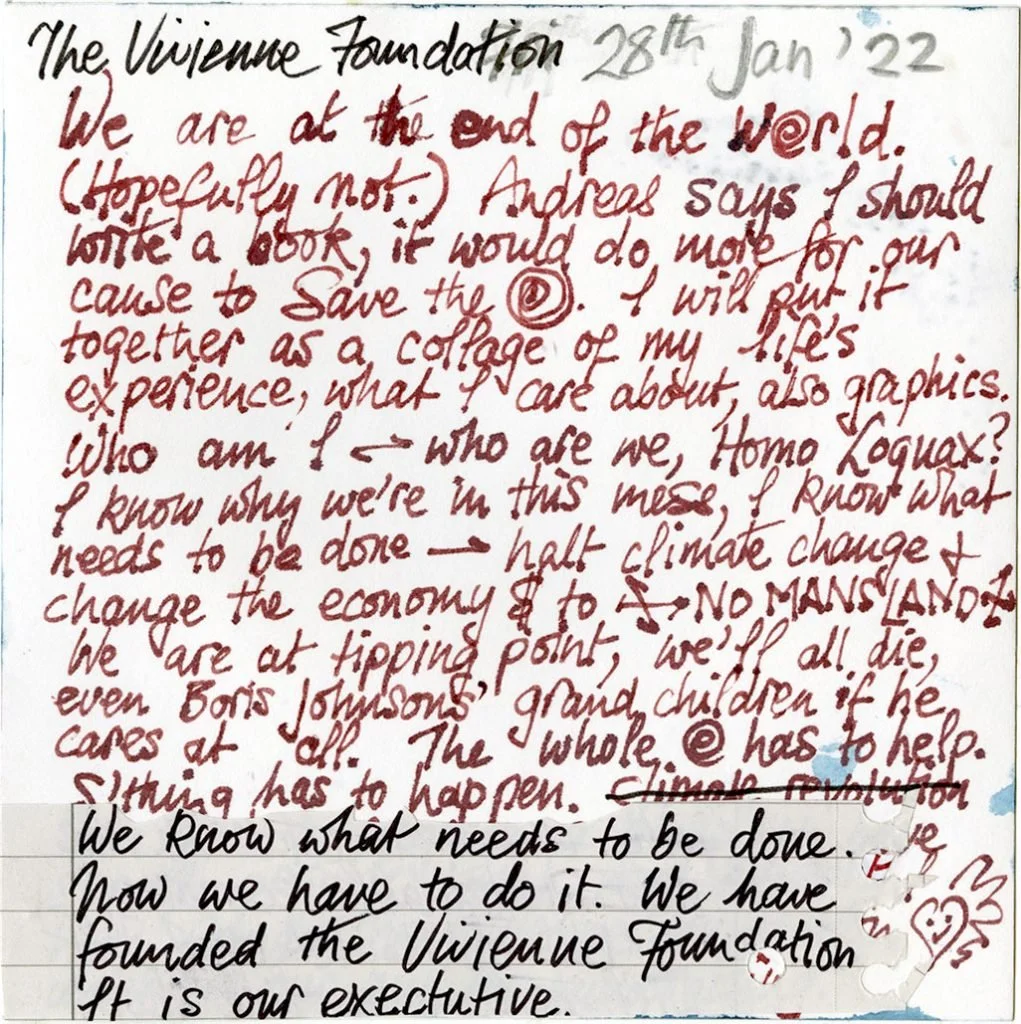 The Vivienne Foundation 28th Jan '22
We are at the end of the world.
(Hopefully not.) Andreas says I should
write a book, it would do more for our
cause to Save the . I will put it
together as a collage of my life's
experience, what I care about, also graphics.
Who am I – who are we, Homo Loquax?
I know why we're in this mess, I know what
needs to be done → halt climate change +
change the economy $ to NO MANS LAND
We are at tipping point, we'll all die,
even Boris Johnsons' grand children if he
cares at all. The whole @ has to help.
S'thing has to happen. climate revolution
We know what needs to be done.
Now we have to do it. We have
founded the Vivienne Foundation
It is our exectutive.